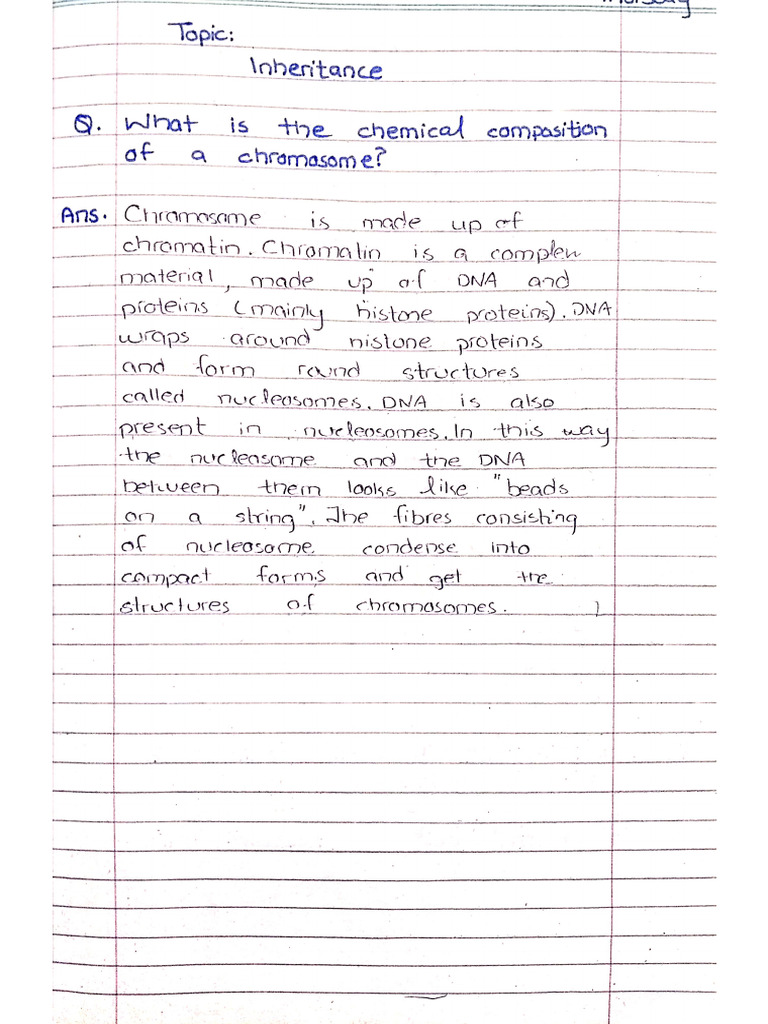 Thursday
Topic:
Inheritance
Q. What is the chemical composition
of a chromosome?
Ans. Chromosome is made up of
chromatin. Chromatin is a complex
material, made up of DNA and
proteins (mainly histone proteins). DNA
wraps around histone proteins
and form round structures
called nucleosomes. DNA is also
present in nucleosomes. In this way
the nucleosome and the DNA
between them looks like "beads
on a string". The fibres consisting
of nucleosome condense into
compact forms and get the
structures of chromosomes.